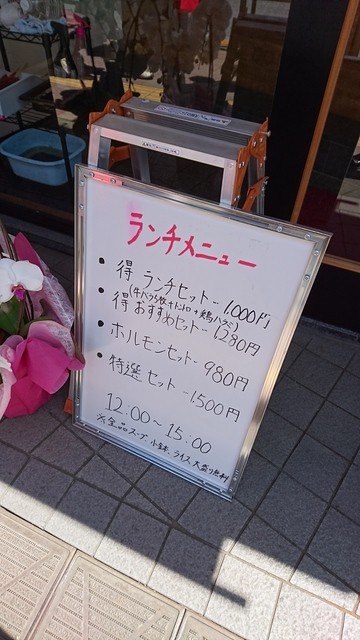 ランチメニュー
・得 ランチセット… 1,000円
(牛バラ3枚+トントロ+鶏ハラミ)
・得 おすすめセット… 1280円
・ホルモンセット… 980円
・特選セット …1,500円
12:00~15:00
※全品スープ、小鉢、ライス大盛り無料